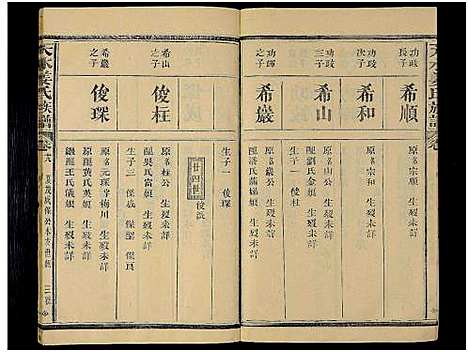 天水姜氏族譜
功政長子
希順
原名宗順 生歿未詳
功政次子
希和
原名宗和 生歿未詳
功政三子
希山
原名山公 生歿未詳
配劉氏金娘 生歿未詳
功師之子
希嚴
原名嚴公 生歿未詳
配潘氏 生歿未詳
生子一 俊琛
廿四世
俊派
希山之子
俊柱
原名柱公 生歿未詳
配吳氏富娘 生歿未詳
希嚴之子
俊琛
原名元琛字梅川 生歿未詳
原配黃氏英娘 生歿未詳
繼配王氏儀娘 生歿未詳
生子三 保成 保 保良
天水姜氏族譜 卷六